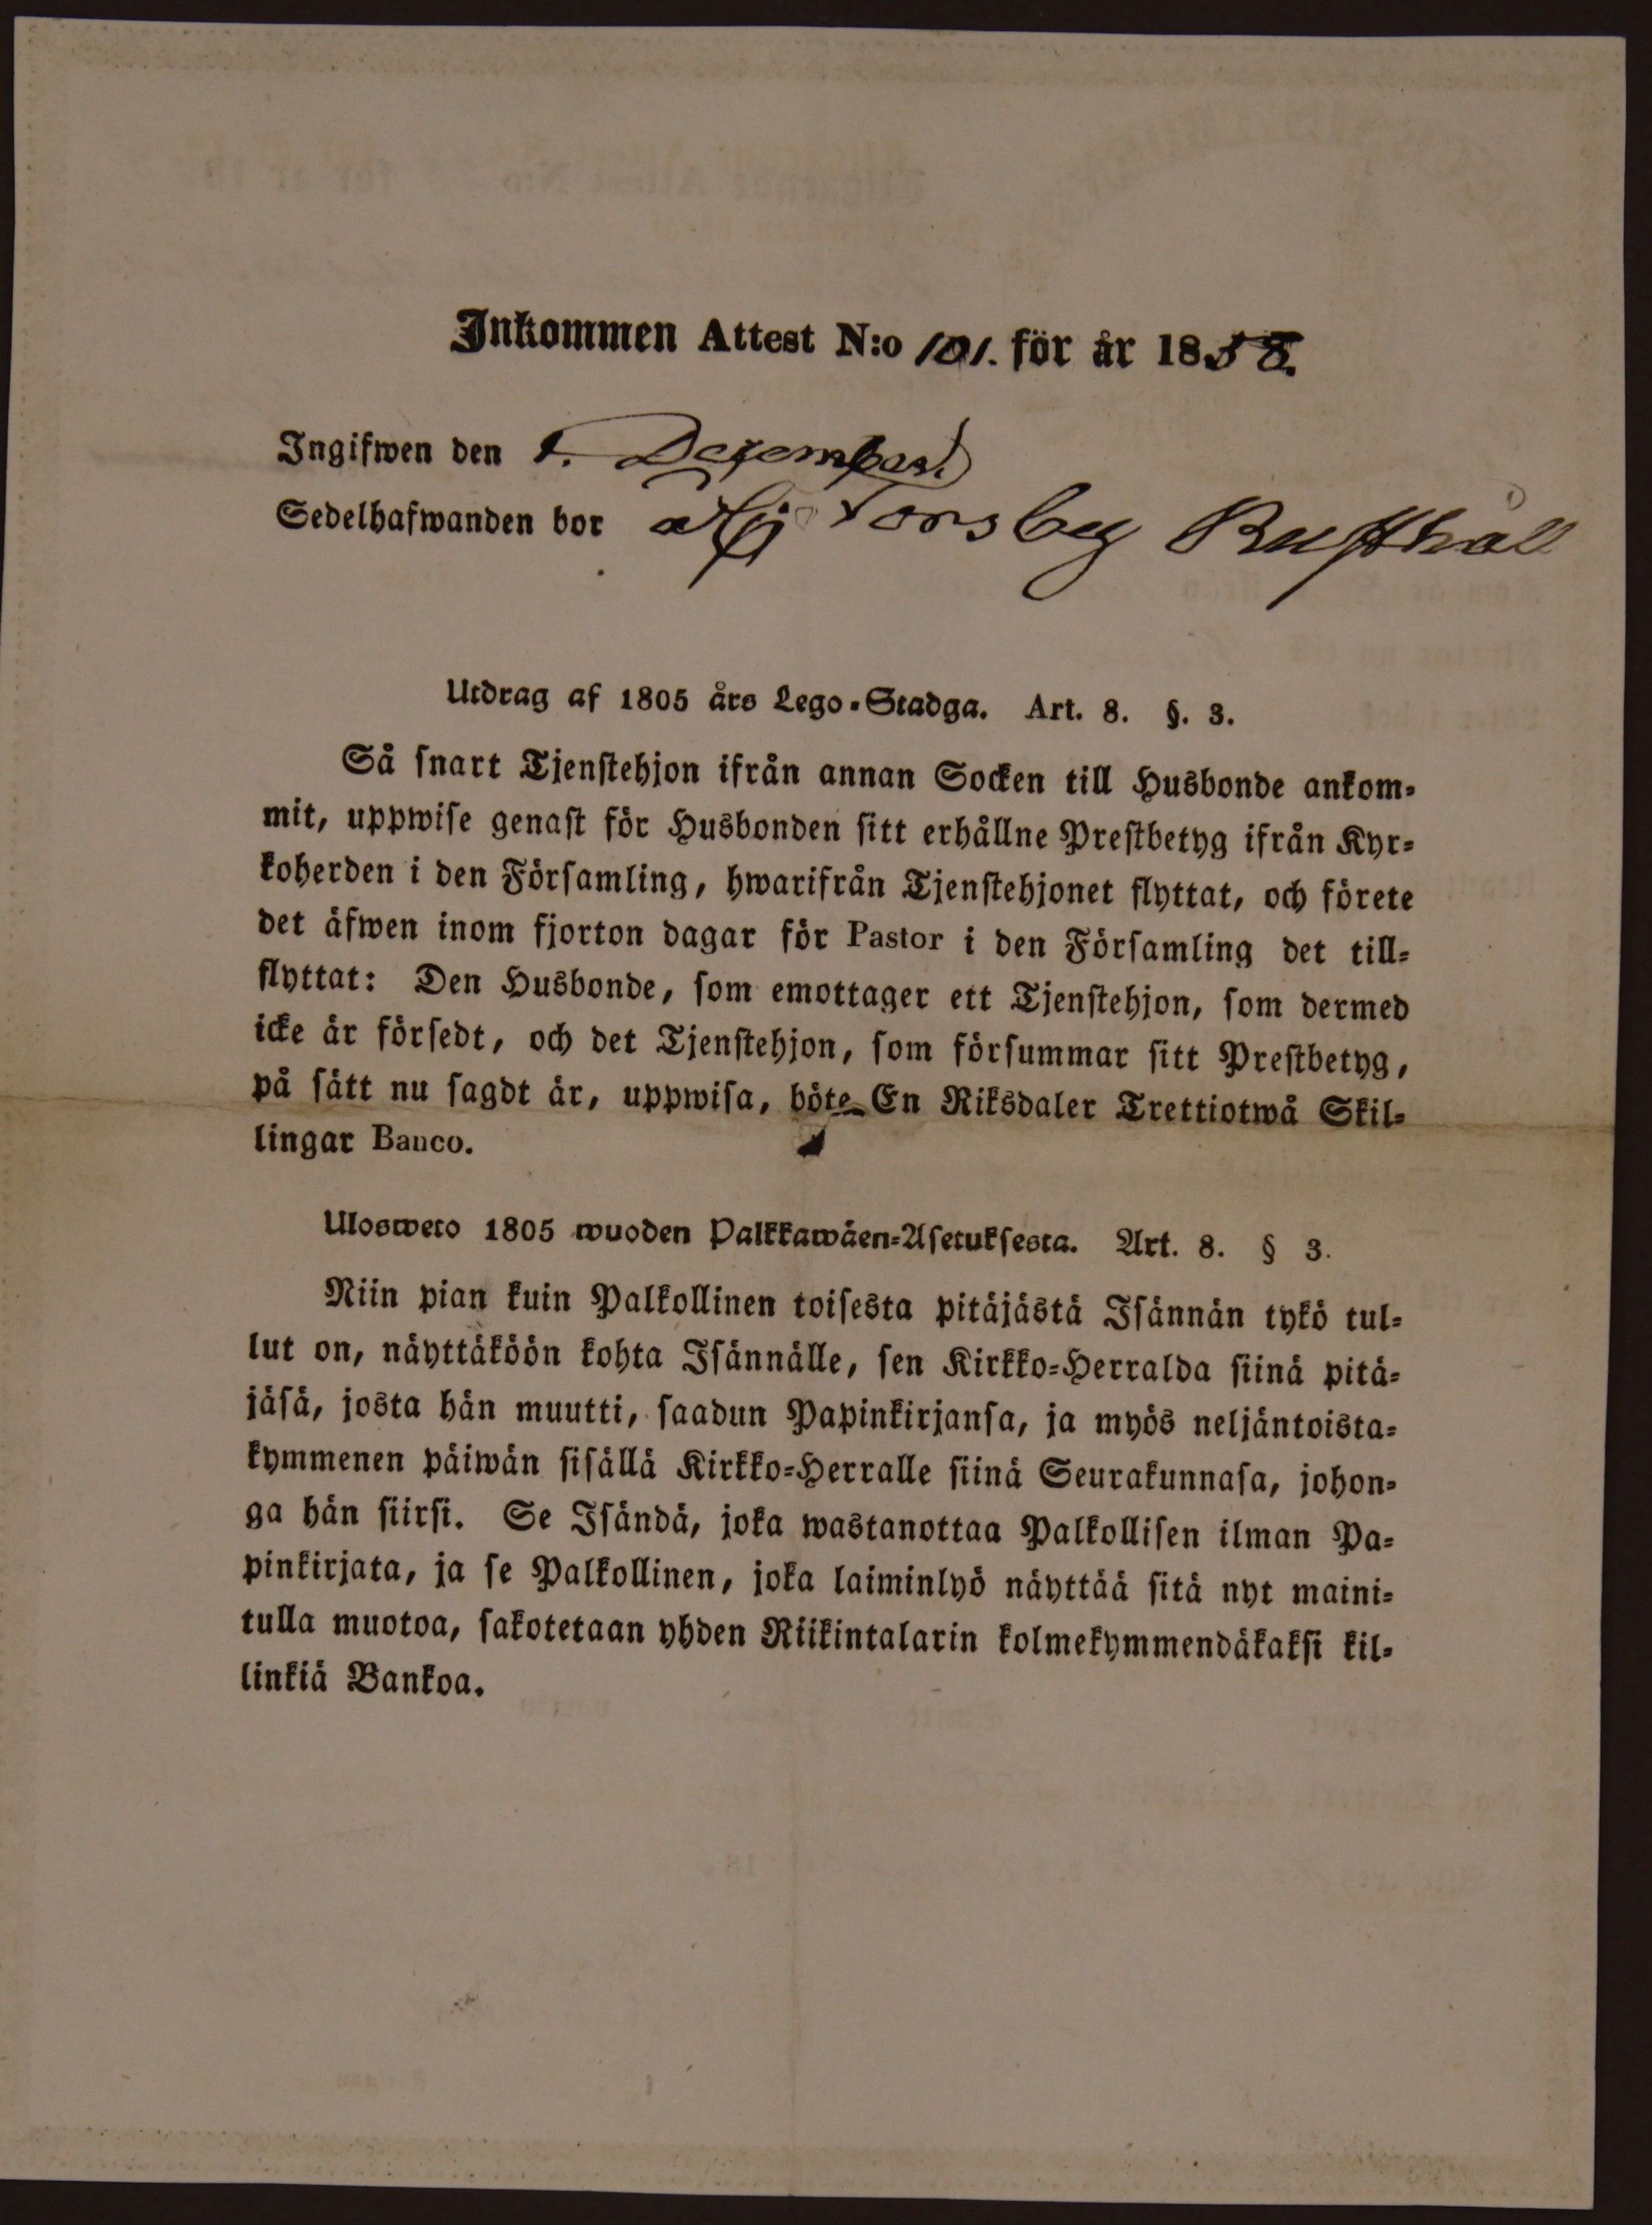 Inkommen Attest N:o 101. för år 1858.
Ingifwen den 1. December
Sedelhafwanden bor å Forsby Rusthåll
Utdrag af 1805 års Lego-Stadga. Art. 8. §. 3.
Så snart Tjenstehjon ifrån annan Socken till Husbonde ankom-
mit, uppwise genast för Husbonden sitt erhållne Prestbetyg ifrån Kyr-
koherden i den Församling, hwarifrån Tjenstehjonet flyttat, och förete
det äfwen inom fjorton dagar för Pastor i den Församling det till-
flyttat: Den Husbonde, som emottager ett Tjenstehjon, som dermed
icke är försedt, och det Tjenstehjon, som försummar sitt Prestbetyg,
på sätt nu sagdt är, uppwisa, böte En Riksdaler Trettiotwå Skil-
lingar Banco.
Ulosweto 1805 wuoden Palkkawäen-Asetuksesta. Art. 8. § 3.
Niin pian kuin Palkollinen toisesta pitäjästä Isännän tykö tul-
lut on, näyttäköön kohta Isännälle, sen Kirkko-Herralda siinä pitä-
jäsä, josta hän muutti, saadun Papinkirjansa, ja myös neljäntoista-
kymmenen päiwän sisällä Kirkko-Herralle siinä Seurakunnasa, johon-
ga hän siirsi. Se Isändä, joka wastanottaa Palkollisen ilman Pa-
pinkirjata, ja se Palkollinen, joka laiminlyö näyttää sitä nyt maini-
tulla muotoa, sakotetaan yhden Riikintalarin kolmekymmendäkaksi kil-
linkiä Bankoa.